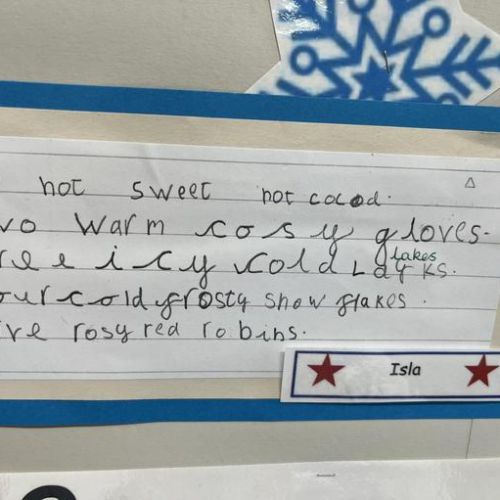 hot sweet hot cocod.
wo warm cosy gloves.
ree icy cold Layks.
lakes
our cold frosty snow flakes.
ive rosy red robins.
Isla